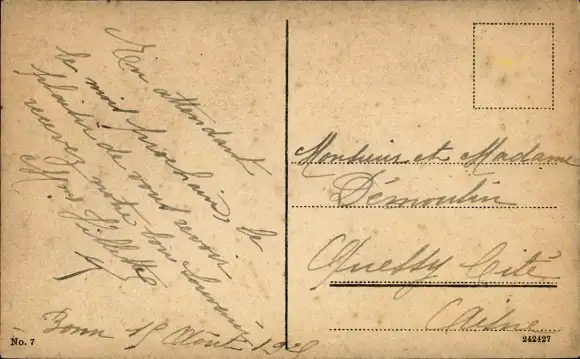 En attendant
le mois prochain, le
plaisir de vous revoir
recevez notre bon souvenir
Mme Gillette
Bonn 19 Août 192
Monsieur et Madame
Démoulin
Quessy Cité
Aisne
No. 7
242427